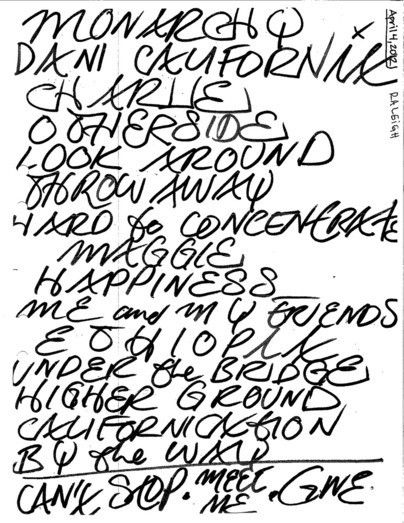 MONARCHY
DANI CALIFORNIA
CHARLIE
OTHERSIDE
LOOK AROUND
THROW AWAY
HARD to CONCENTRATE
MAGGIE
HAPPINESS
ME and MY FRIENDS
ETHIOPIA
UNDER the BRIDGE
HIGHER GROUND
CALIFORNICATION
BY the WAY
CAN'T STOP. MEET ME. GIVE.
April 4, 2012 RALEIGH